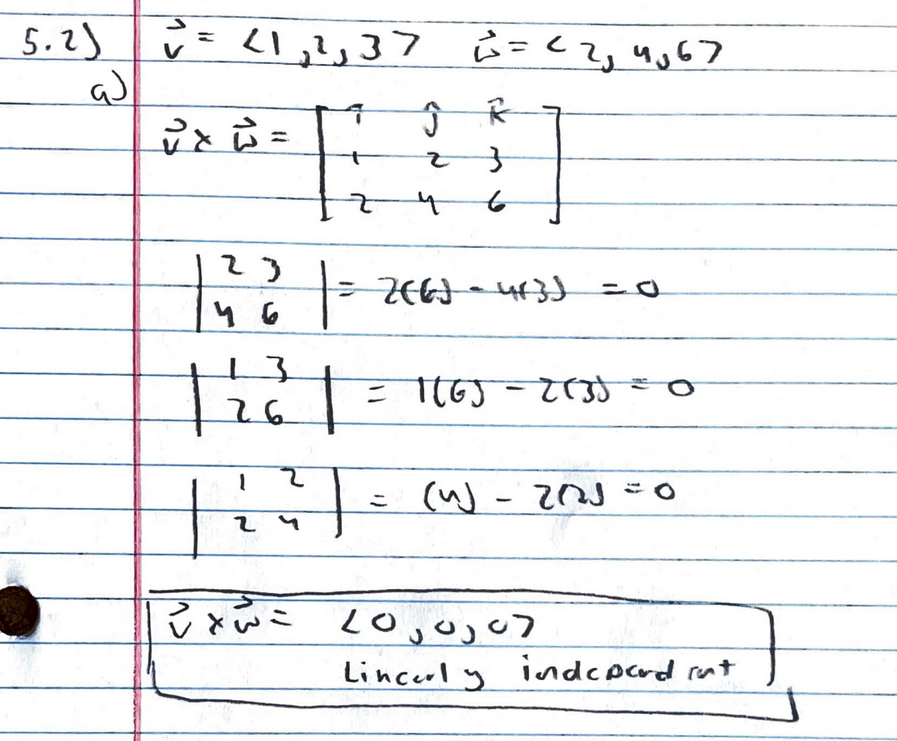 5.2) v⃗ = <1,2,3> w⃗ = <2,4,6>
a)
v⃗ x w⃗ = [ î ĵ k̂
1 2 3
2 4 6 ]
| 2 3
4 6 | = 2(6) - 4(3) = 0
| 1 3
2 6 | = 1(6) - 2(3) = 0
| 1 2
2 4 | = (4) - 2(2) = 0
v⃗ x w⃗ = <0,0,0>
Linearly independent